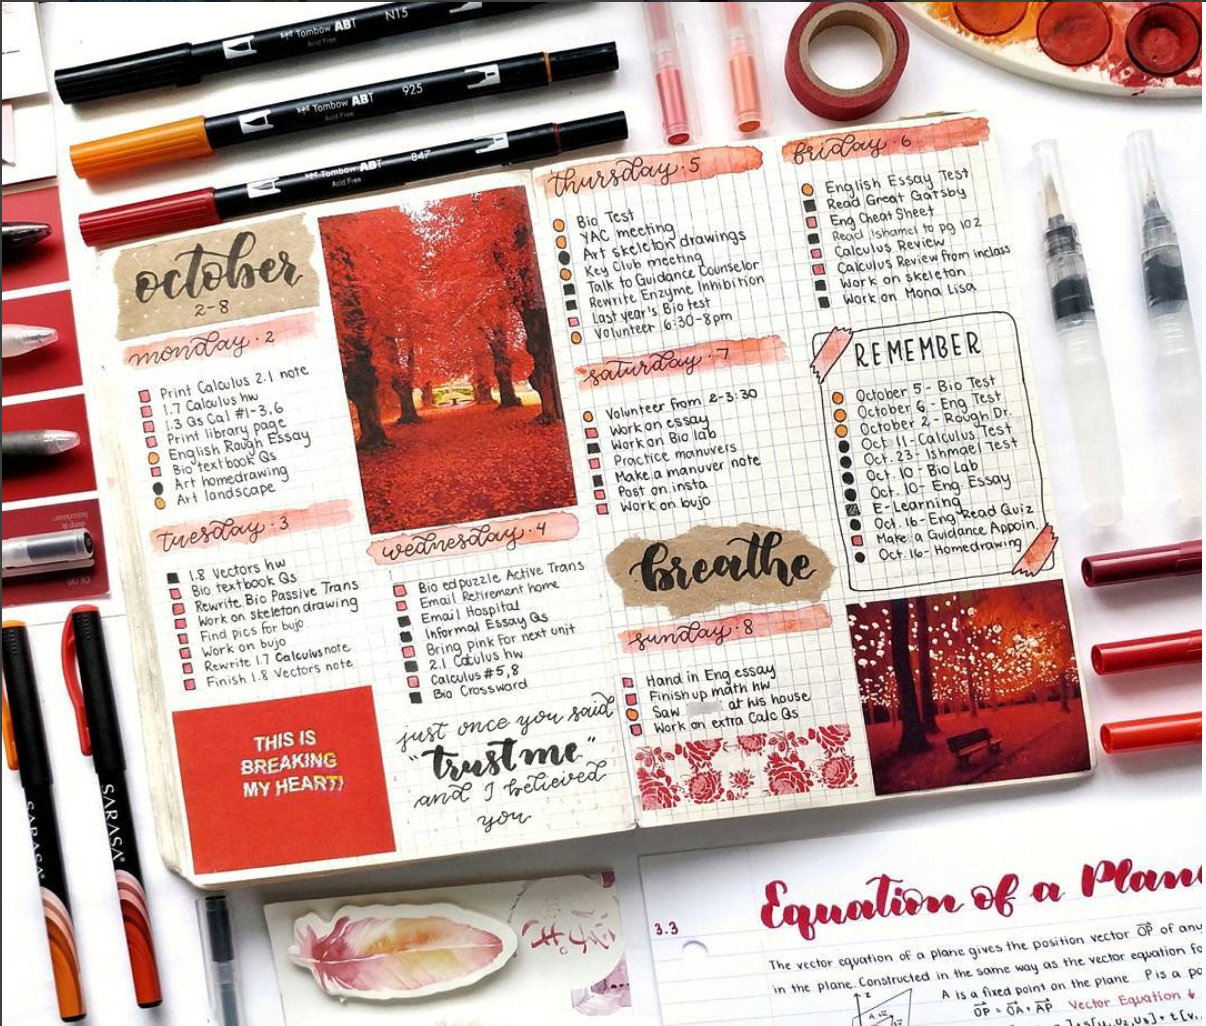 Tombow ABT N15
Acid Free
Tombow ABT 925
Acid Free
Tombow ABT 847
Acid Free
october
2-8
monday · 2
Print Calculus 2.1 note
1.7 Calculus hw
1.3 Qs Cal #1-3,6
Print library page
English Rough Essay
Bio textbook Qs
Art homedrawing
Art landscape
tuesday · 3
1.8 Vectors hw
Bio textbook Qs
Rewrite Bio Passive Trans
Work on skeleton drawing
Find pics for bujo
Work on bujo
Rewrite 1.7 Calculus note
Finish 1.8 Vectors note
THIS IS
BREAKING
MY HEART!
wednesday · 4
Bio edpuzzle Active Trans
Email Retirement home
Email Hospital
Informal Essay Qs
Bring pink for next unit
2.1 Calculus hw
Calculus #5,8
Bio Crossword
just once you said
"trust me"
and I believed
you
thursday · 5
Bio Test
YAC meeting
Art skeleton drawings
Key Club meeting
Talk to Guidance Counselor
Rewrite Enzyme Inhibition
Last year's Bio test
Volunteer 6:30-8pm
saturday · 7
Volunteer from 2-3:30
Work on essay
Work on Bio lab
Practice manuvers
Make a manuver note
Post on insta
Work on bujo
breathe
sunday · 8
Hand in Eng essay
Finish up math hw
Saw at his house
Work on extra Calc Qs
friday · 6
English Essay Test
Read Great Gatsby
Eng Cheat Sheet
Read Ishamel to pg 102
Calculus Review
Calculus Review from inclass
Work on skeleton
Work on Mona Lisa
REMEMBER
October 5 - Bio Test
October 6 - Eng Test
October 2 - Rough Dr.
Oct. 11 - Calculus Test
Oct. 23 - Ishmael Test
Oct. 10 - Bio Lab
Oct. 10 - Eng Essay
E-Learning
Oct. 16 - Eng Read Quiz
Make a Guidance Appoin.
Oct. 16 - Homedrawing
SARASA
SARASA
3.3
Equation of a Plane
The vector equation of a plane gives the position vector OP of any
in the plane. Constructed in the same way as the vector equation fo
A is a fixed point on the plane. P is a po
OP = OA + AP Vector Equation ↓